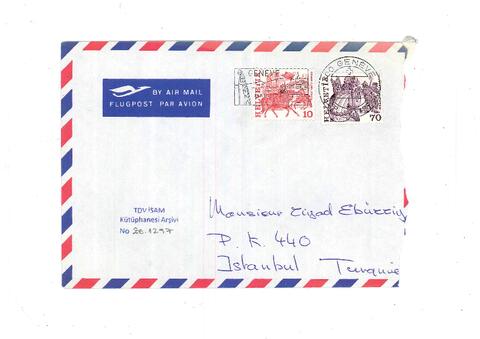 BY AIR MAIL
FLUGPOST PAR AVION
GENEVE
HELVETIA
10
GENEVE
HELVETIA
70
TDV İSAM
Kütüphanesi Arşivi
No 2E.1297
Monsieur Ziyad Ebüzziy
P. K. 440
Istanbul Turquie